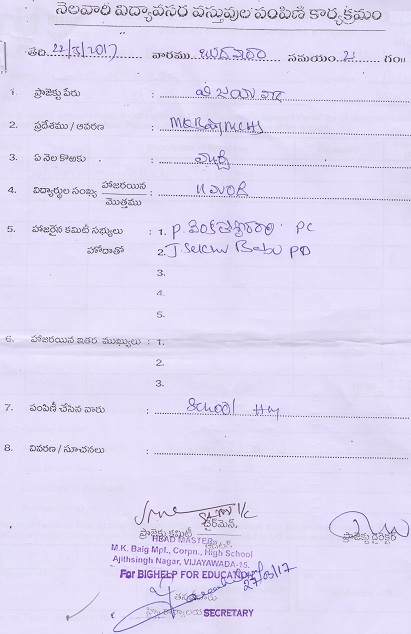 నెలవారి విద్యావసర వస్తువుల పంపిణి కార్యక్రమం
తేది. 22/3/2017 వారము బుధవారం సమయం 2 గం॥
1. ప్రాజెక్టు పేరు : విజయవాడ
2. ప్రదేశము / ఆవరణ : MKBaig MCHS
3. ఏ నెల కొఱకు : మార్చి
4. విద్యార్థుల సంఖ్య హాజరయిన / మొత్తము :
5. హాజరైన కమిటీ సభ్యులు : 1. P. వెంకటేశ్వరరావు PC
హోదాతో 2. J Seshu Babu PD
3.
4.
5.
6. హాజరయిన ఇతర ముఖ్యులు : 1.
2.
3.
7. పంపిణీ చేసిన వారు : School HM
8. వివరణ / సూచనలు :
ప్రాజెక్టు కమిటీ ఛైర్మెన్. ప్రాజెక్టు డైరెక్టర్
HEAD MASTER
M.K. Baig Mpl., Corpn., High School
Ajithsingh Nagar, VIJAYAWADA-15.
For BIGHELP FOR EDUCATION
27/03/17
SECRETARY